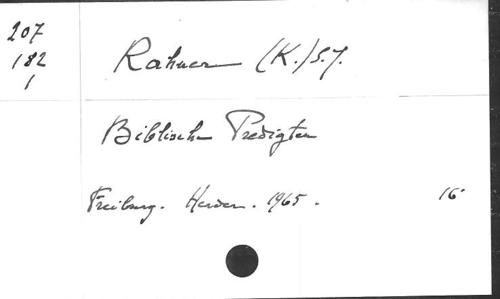 207
182
1
Rahner (K.) s.j.
Biblische Predigten
Freiburg. Herder. 1965. 16°